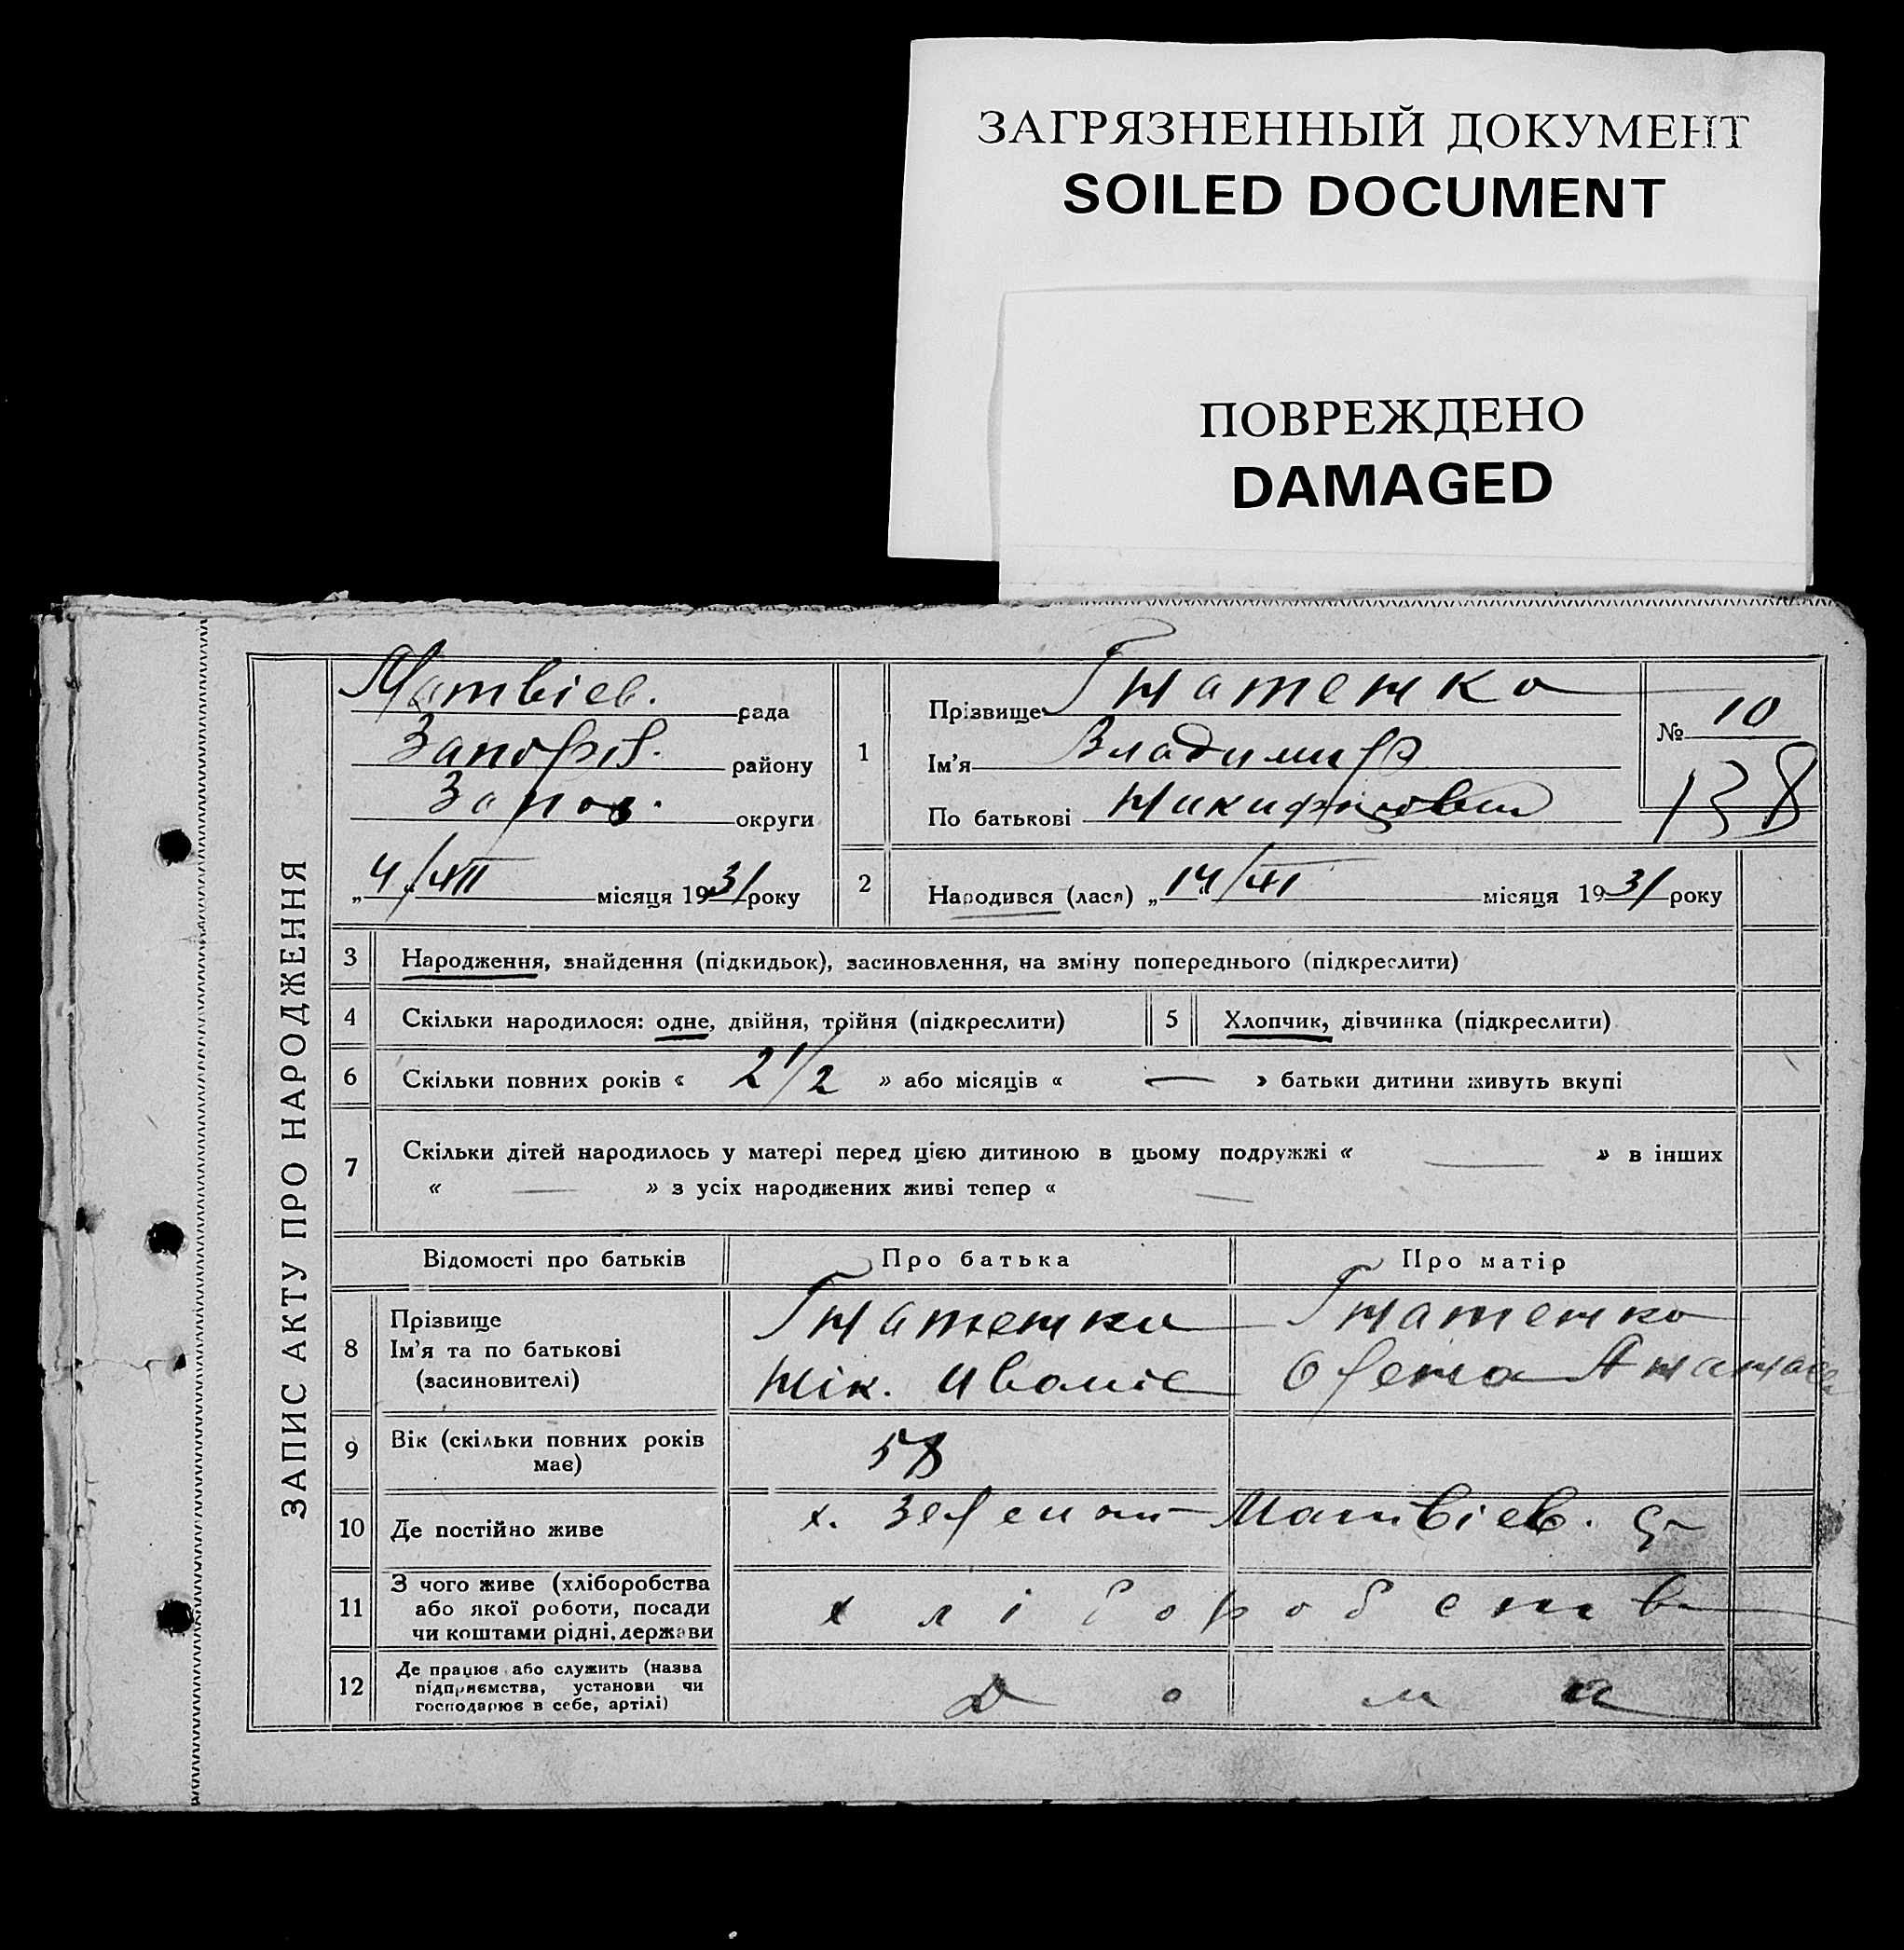 ЗАГРЯЗНЕННЫЙ ДОКУМЕНТ
SOILED DOCUMENT
ПОВРЕЖДЕНО
DAMAGED
ЗАПИС АКТУ ПРО НАРОДЖЕННЯ
Матвіев. рада
Запоріз. району
Запоз. округи
„4/XII місяця 1931 року
1
Прізвище Гнатенко
Ім'я Владимир
По батькові Никифорович
№ 10
138
2 Народився (лася) „14/XI місяця 1931 року
3 Народження, знайдення (підкидьок), засиновлення, на зміну попереднього (підкреслити)
4 Скільки народилося: одне, двійня, трійня (підкреслити) 5 Хлопчик, дівчинка (підкреслити)
6 Скільки повних років « 2 1/2 » або місяців « — » батьки дитини живуть вкупі
7 Скільки дітей народилось у матері перед цією дитиною в цьому подружжі « — » в інших
« — » з усіх народжених живі тепер « —
Відомості про батьків Про батька Про матір
8 Прізвище Гнатенко Гнатенко
Ім'я та по батькові
(засиновителі) Нік. Иваніє
9 Вік (скільки повних років має) 58
10 Де постійно живе х. Матвіев.
11 З чого живе (хліборобства
або якої роботи, посади
чи коштами рідні, держави хліборобств
12 Де працює або служить (назва
підприємства, установи чи
господарює в себе, артілі) Дома